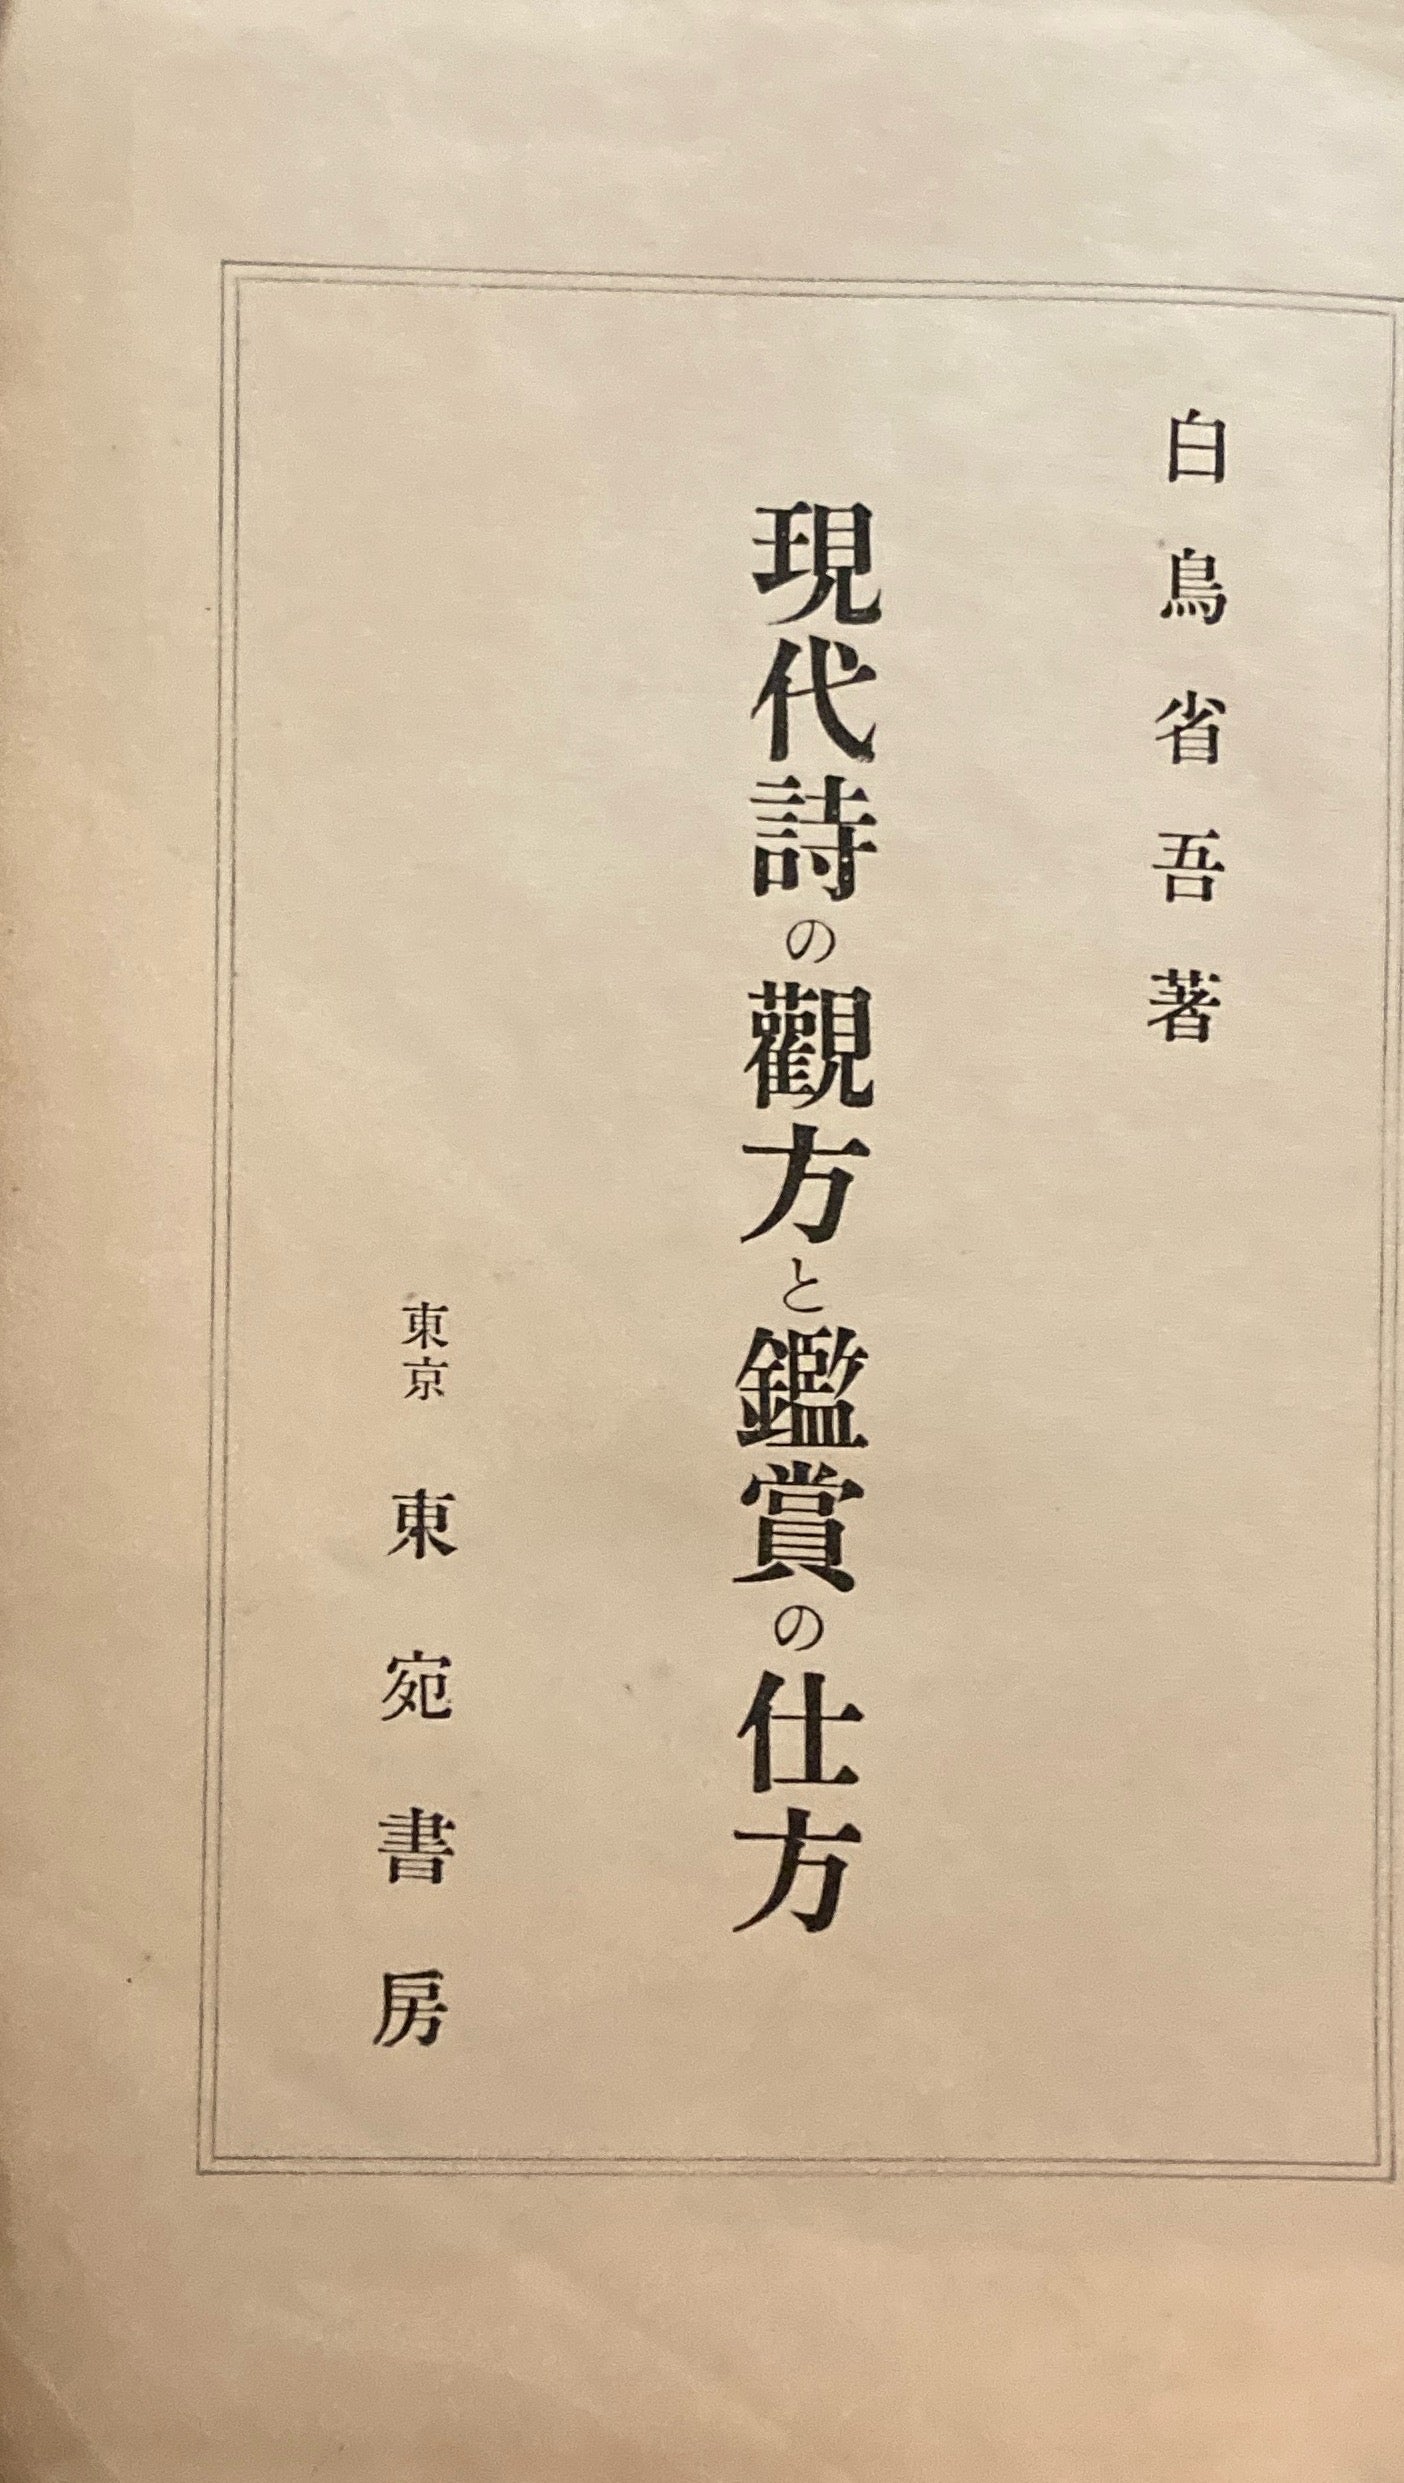 白鳥省吾著
現代詩の觀方と鑑賞の仕方
東京 東宛書房